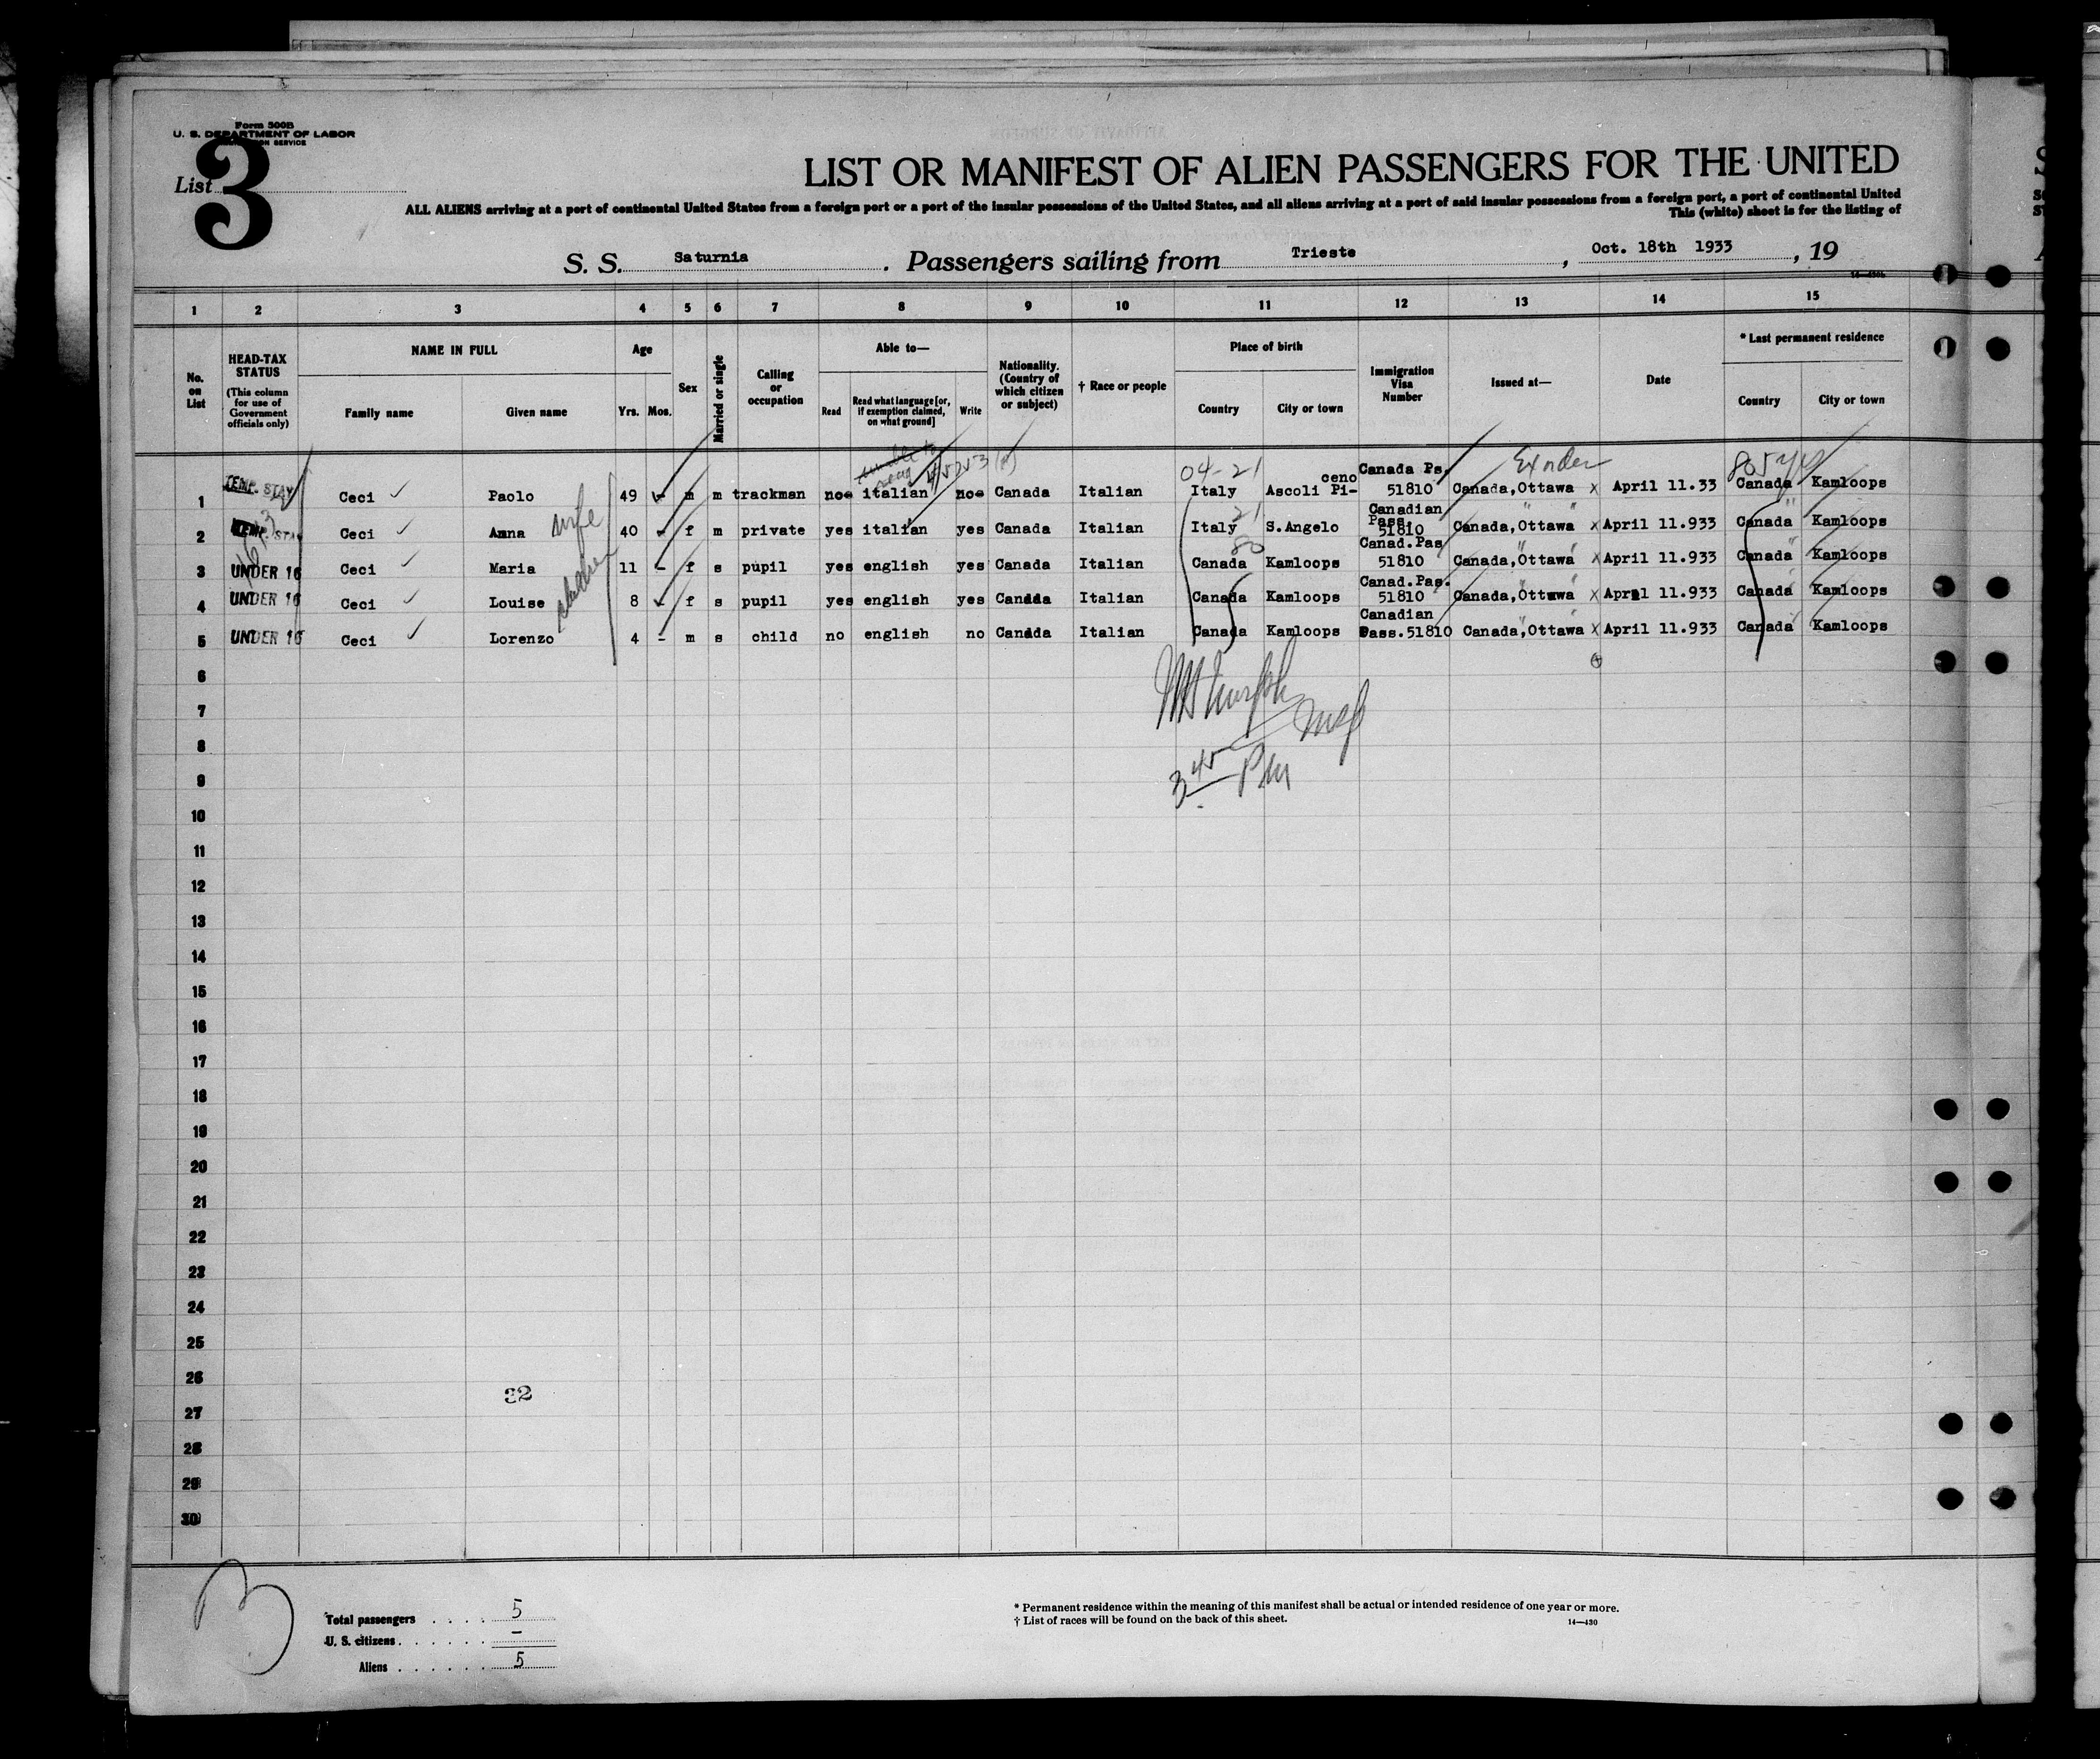 Form 500B
U. S. DEPARTMENT OF LABOR
SERVICE
List 3
LIST OR MANIFEST OF ALIEN PASSENGERS FOR THE UNITED
ALL ALIENS arriving at a port of continental United States from a foreign port or a port of the insular possessions of the United States, and all aliens arriving at a port of said insular possessions from a foreign port, a port of continental United
This (white) sheet is for the listing of
S. S. Saturnia . Passengers sailing from Trieste , Oct. 18th 1933 , 19
1 2 3 4 5 6 7 8 9 10 11 12 13 14 15
No. on List
HEAD-TAX STATUS
(This column for use of Government officials only)
NAME IN FULL
Family name Given name
Age
Yrs. Mos.
Sex
Married or single
Calling or occupation
Able to—
Read Read what language [or, if exemption claimed, on what ground] Write
Nationality. (Country of which citizen or subject)
† Race or people
Place of birth
Country City or town
Immigration Visa Number
Issued at—
Date
* Last permanent residence
Country City or town
04-21 805 yes
1 TEMP. STAY Ceci Paolo 49 - m m trackman no italian no Canada Italian Italy Ascoli Pi-ceno Canada Ps. 51810 Canada,Ottawa x April 11.33 Canada Kamloops
2 TEMP. STAY Ceci Anna wife 40 - f m private yes italian yes Canada Italian Italy 21 S.Angelo Canadian Pass. 51810 Canada,Ottawa x April 11.933 Canada Kamloops
3 UNDER 16 Ceci Maria children 11 - f s pupil yes english yes Canada Italian Canada 80 Kamloops Canad.Pas 51810 Canada,Ottawa x April 11.933 Canada Kamloops
4 UNDER 16 Ceci Louise 8 - f s pupil yes english yes Canada Italian Canada Kamloops Canad.Pas. 51810 Canada,Ottawa x April 11.933 Canada Kamloops
5 UNDER 16 Ceci Lorenzo 4 - m s child no english no Canada Italian Canada Kamloops Canadian Pass.51810 Canada,Ottawa x April 11.933 Canada Kamloops
6
7
8
9
3 45 PM
10
11
12
13
14
15
16
17
18
19
20
21
22
23
24
25
26
32
27
28
29
30
3
Total passengers . . . . 5
U. S. citizens . . . . . . –
Aliens . . . . . . 5
* Permanent residence within the meaning of this manifest shall be actual or intended residence of one year or more.
† List of races will be found on the back of this sheet.
14—430